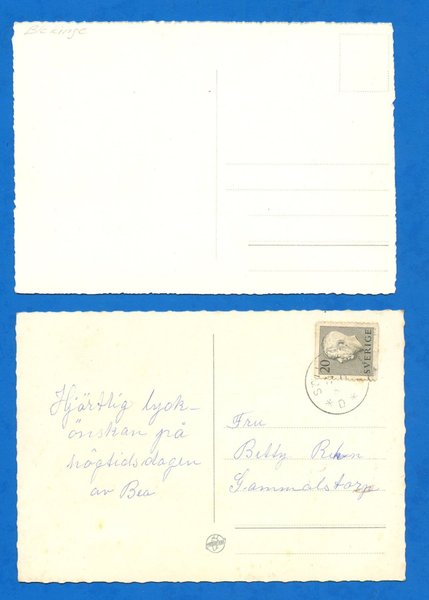 Blekinge
Hjärtlig lyck-
önskan på
högtidsdagen
av Bea
20
SVERIGE
Fru
Betty Rehn
Gammalstorp